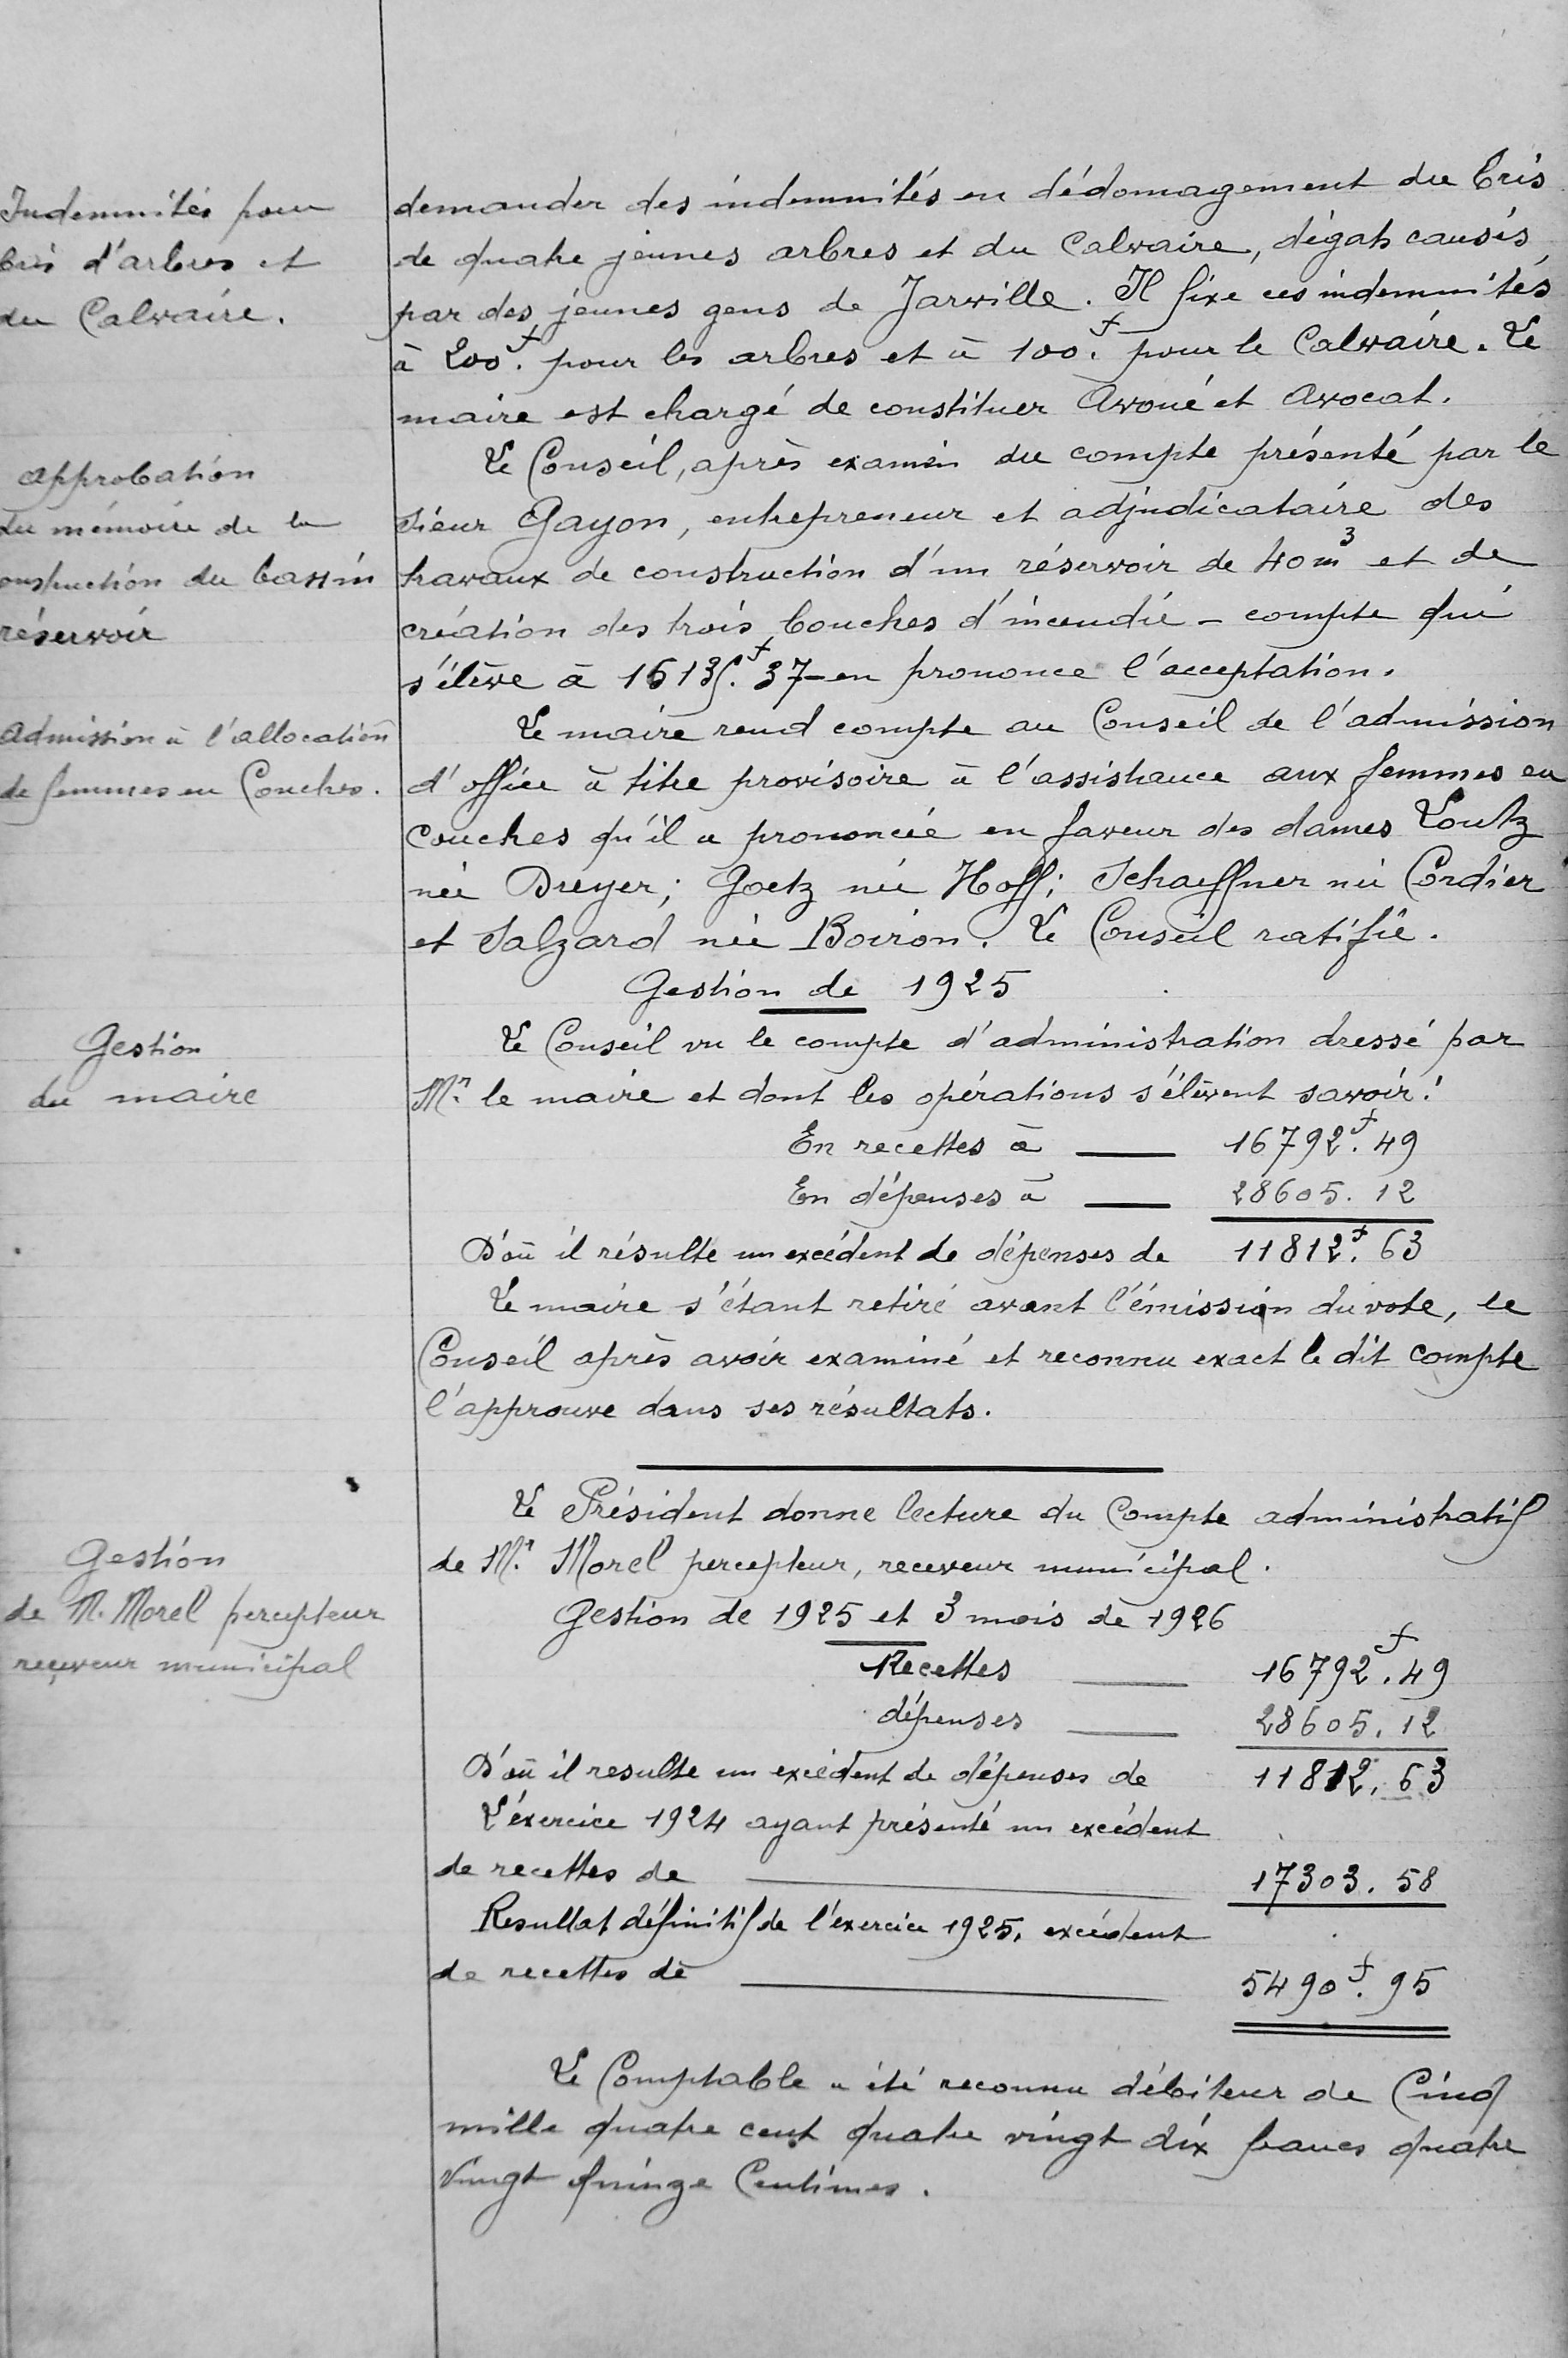 Indemnités pour
bris d'arbres et
du Calvaire.
demander des indemnités en dédomagement du bris
de quatre jeunes arbres et du Calvaire, dégats causés
par des jeunes gens de Jarville. Il fixe ces indemnités
à 200f. pour les arbres et à 100f. pour le Calvaire. Le
maire est chargé de constituer Avoué et Avocat.
approbation
du mémoire de la
onstruction du bassin
réservoir
Le Conseil, après examen du compte présenté par le
sieur Gayon, entrepreneur et adjudicataire des
travaux de construction d'un réservoir de 40m³ et de
création des trois bouches d'incendie - compte qui
s'élève à f. 37 - en prononce l'acceptation.
Admission à l'allocation
de femmes en Couches.
Le maire rend compte au Conseil de l'admission
d'office à titre provisoire à l'assistance aux femmes en
couches qu'il a prononcée en faveur des dames Loutz
née Dreyer; Goetz née Hoff; Schaeffner née Cordier
et Salzard née Boiron. Le Conseil ratifie.
Gestion de 1925
Gestion
du maire
Le Conseil vu le compte d'administration dressé par
Mr. le maire et dont les opérations s'élèvent savoir:
En recettes à — 16792f. 49
En dépenses à — 28605. 12
D'où il résulte un excédent de dépenses de 11812f. 63
Le maire s'étant retiré avant l'émission du vote, le
Conseil après avoir examiné et reconnu exact le dit compte
l'approuve dans ses résultats.
Gestion
de M. Morel percepteur
receveur municipal
Le Président donne lecture du Compte administratif
de Mr. Morel percepteur, receveur municipal.
Gestion de 1925 et 3 mois de 1926
Recettes — 16792f. 49
dépenses — 28605. 12
D'où il resulte un excédent de dépenses de 11812, 63
L'éxercice 1924 ayant présenté un excédent
de recettes de — 17303. 58
Resultat définitif de l'exercice 1925, excédent
de recettes de — 5490f. 95
Le Comptable a été reconnu débiteur de Cinq
mille quatre cent quatre vingt dix francs quatre
vingt quinze Centimes.